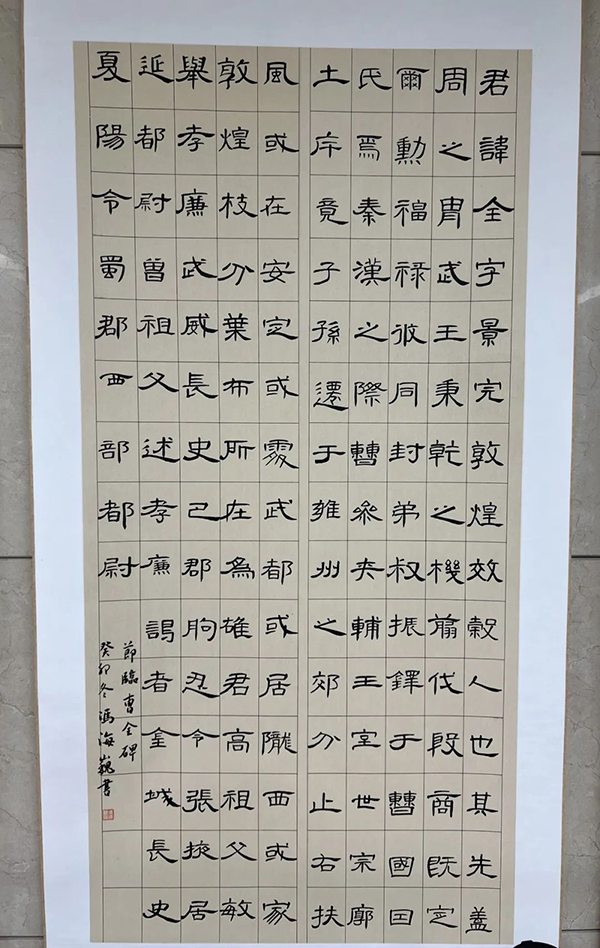 君諱全字景完敦煌效穀人也其先蓋
周之胄武王秉乾之機翦伐殷商既定
爾勲福祿攸同封弟叔振鐸于曹國因
氏焉秦漢之際曹參夾輔王室世宗廓
土斥竟子孫遷于雍州之郊分止右扶
風或在安定或處武都或居隴西或家
敦煌枝分葉布所在為雄君高祖父敏
舉孝廉武威長史巴郡朐忍令張掖居
延都尉曾祖父述孝廉謁者金城長史
夏陽令蜀郡西部都尉
節臨曹全碑
癸卯冬馮海巍書